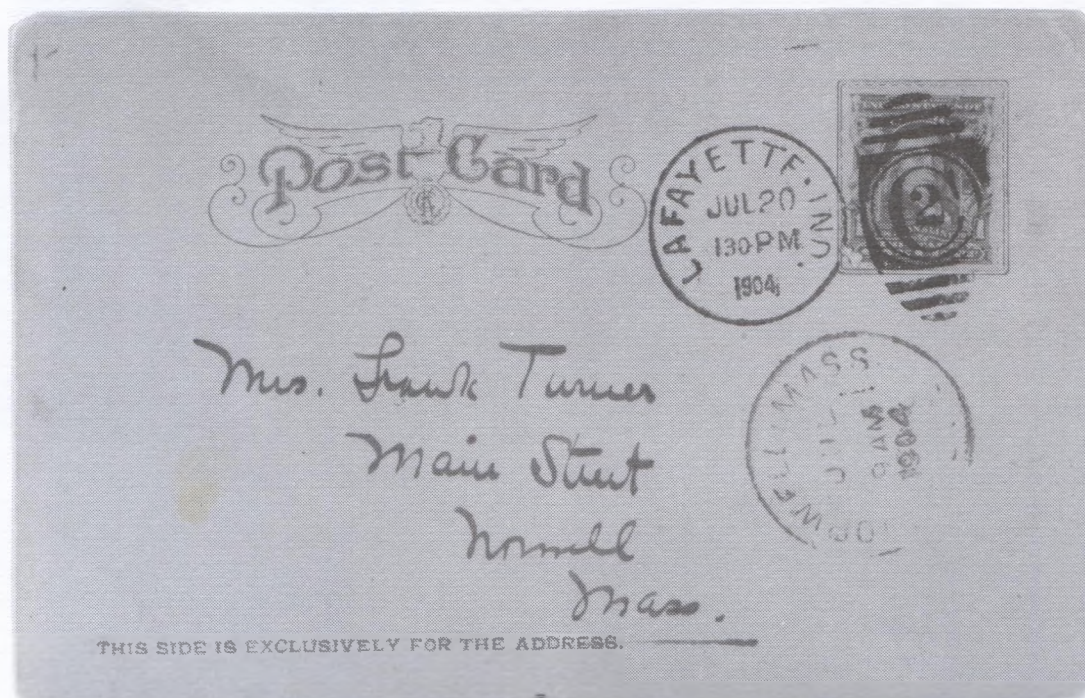 Post Card
LAFAYETTE, IND.
JUL 20
130 PM
1904
2
Mrs. Frank Turner
Main Street
Norwell
Mass.
NORWELL MASS.
JUL
9 AM
1904
THIS SIDE IS EXCLUSIVELY FOR THE ADDRESS.